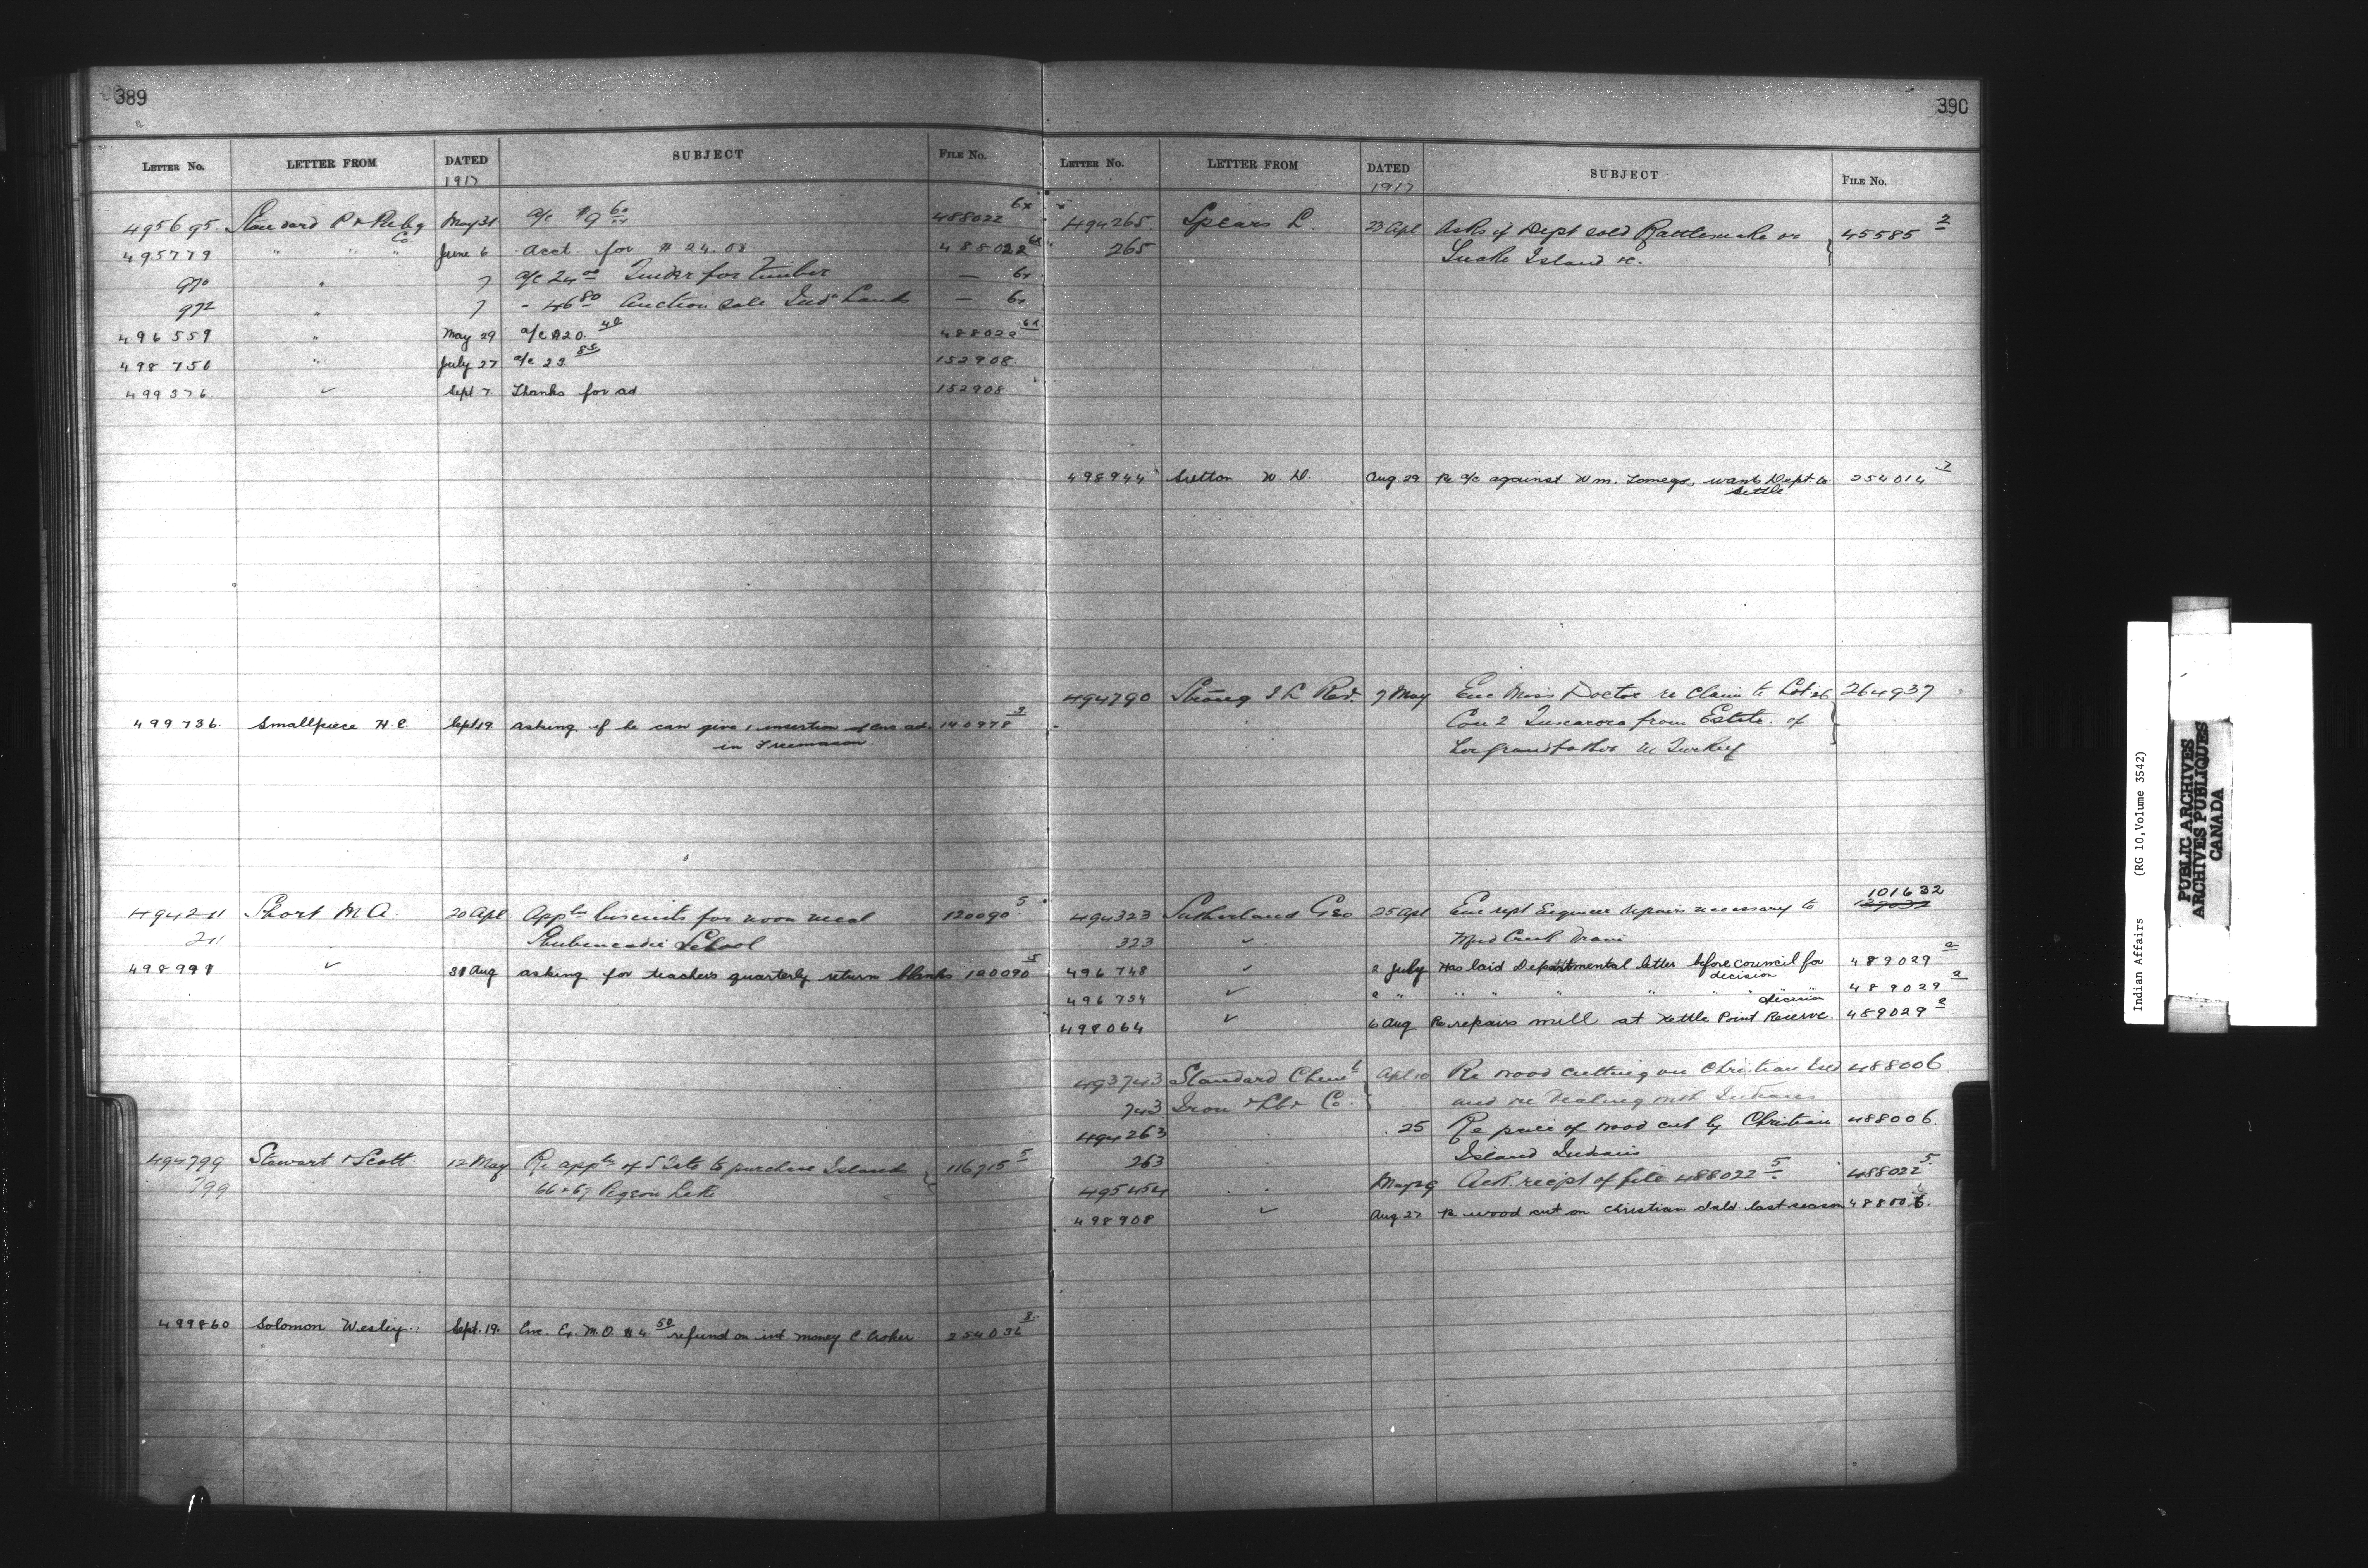 389
LETTER NO. LETTER FROM DATED SUBJECT FILE NO.
1917
495695 Standard P & Publg Co. May 31 a/c $9 60/xx 488022 6x
495779 " " " June 6 Acct. for $24.08 488022 6x
970 " 7 a/c 24 00 Tender for timber — 6x
972 " 7 - 46 80 Auction sale Indn Lands — 6x
496559 " May 29 a/c $20. 40 488022 6x
498750 " July 27 a/c 23 85 152908
499376 ✓ Sept 7. Thanks for ad. 152908
499736. Smallpiece H. C. Sept 19 asking if he can give 1 insertion of enc ad. 140978 3
in Freemason
494211 Short M A. 20 Apl Appln biscuits for noon meal 120090 5
211 ✓ Shubenacadie School
498991 ✓ 31 Aug asking for teachers quarterly return blanks 120090 5
494799 Stewart & Scott. 12 May Re appln of S Tate to purchase Islands 116715 5
799 66 & 67 Pigeon Lake
499860 Solomon Wesley. Sept. 19. Enc. Ex. M.O. $4. 50 refund on int. money C Croker 254036 8
390
LETTER NO. LETTER FROM DATED SUBJECT FILE NO.
1917
494265 Spears L. 23 Apl Asks if Dept sold Rattlesnake or 45585 2
265 Snake Island &c.
498944 Sutton W. D. Aug 29 Re a/c against Wm. Tomego, wants Dept. to 254014 7
settle.
494790 Strong I L Rev. 7 May Enc Miss Doctor re Claim to Lot 26 264937
Con 2 Tuscarora from Estate of
her grandfather M Turkey
101632
494323 Sutherland Geo 25 Apl Enc rept Engineer repairs necessary to
323 ✓ Mud Creek Drain
496748 ✓ 2 July Has laid Departmental letter before council for 489029 2
decision
496754 ✓ 2 " " " " " " " decision 489029 2
498064 ✓ 6 Aug Re repairs mill at Kettle Point Reserve. 489029 2
493743 Standard Cheml Apl 10 Re wood cutting on Christian Isd 488006
743 Iron & Lbr Co. and re dealing with Indians
494263 " 25 Re price of wood cut by Christian 488006.
263 Island Indians
495454 " May 29 Ack. receipt of file 488022 5 488022 5
498908 ✓ Aug 27 Re wood cut on Christian Isld. last season 488006.
Indian Affairs (RG 10, Volume 3542)
PUBLIC ARCHIVES
ARCHIVES PUBLIQUES
CANADA